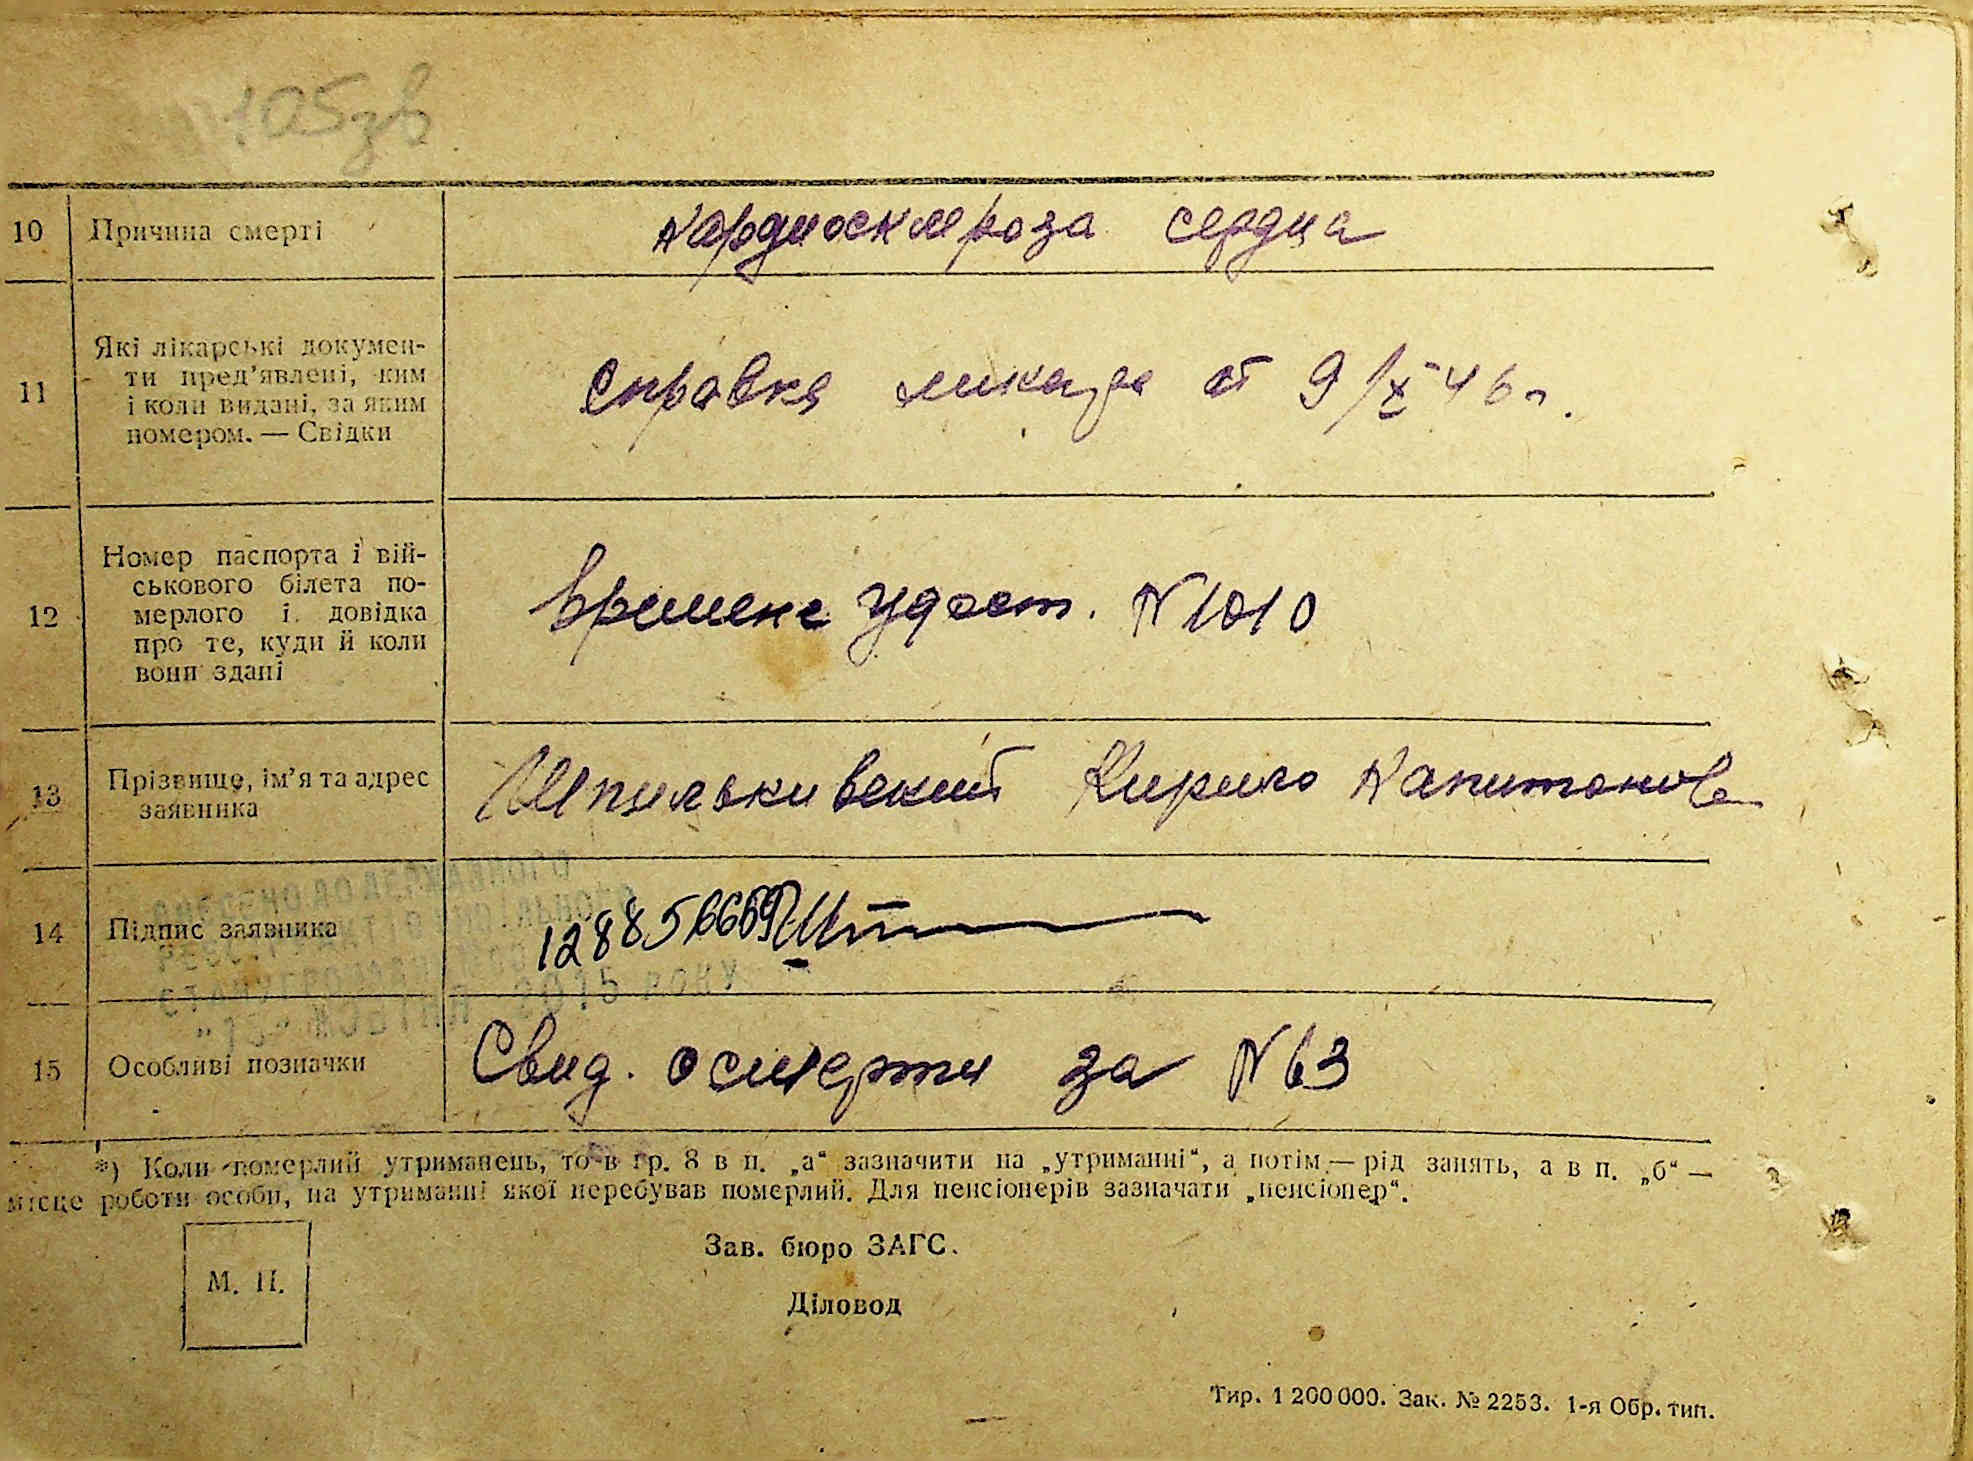 105зв
10 Причина смерті кардиосклероза сердца
11 Які лікарські докумен-
ти пред'явлені, ким
і коли видані, за яким
номером. — Свідки
Справка ликаря от 9/X 46 г.
12 Номер паспорта і вій-
ськового білета по-
мерлого і довідка
про те, куди й коли
вони здані
Времене удост. N 1010
13 Прізвище, ім'я та адрес
заявника
Шпильки вский Кирило Капитонов
14 Підпис заявника
15 Особливі позначки Свид. о смерти за N 63
*) Коли померлий утриманець, то в гр. 8 в п. „а“ зазначити на „утриманні“, а потім — рід занять, а в п. „б“ —
місце роботи особи, на утриманні якої перебував померлий. Для пенсіонерів зазначати „пенсіонер“.
М. П.
Зав. бюро ЗАГС.
Діловод
Тир. 1 200 000. Зак. № 2253. 1-я Обр. тип.